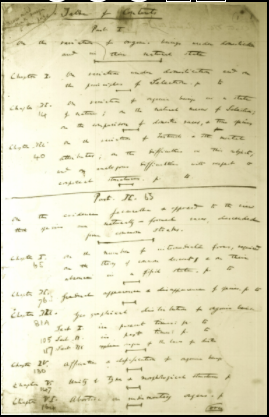 Table of Contents
Part I.
On the variation of organic beings under domestication
and in their natural state.
Chapter I. On variation under domestication and on
the principles of Selection p. to
Chapter II. On variation of organic beings in a state
of nature; on the natural means of Selection;
on the comparison of domestic races & true species
Chapter III. On the variation of instincts & other mental
attributes; on the difficulties on this subject,
and on analogous difficulties with respect to
corporeal structures p. to
Part II. 53
On the evidence favourable & opposed to the view
that species are naturally formed races, descended
from common stocks.
Chapter I. On the number of intermediate forms, required
on the theory of common descent; & on their
absence in a fossil state. p. to
Chapter II. Gradual appearance & disappearance of species p. to
Chapter III. Geographical distribution of organic beings
Sect. I in present times: p. to
Sect. II in past times p. to
Chapter IV. Affinities & classification of organic beings
Chapter V. Unity of Type & morphological structure p.
Chapter VI. Abortive or rudimentary organs: p.